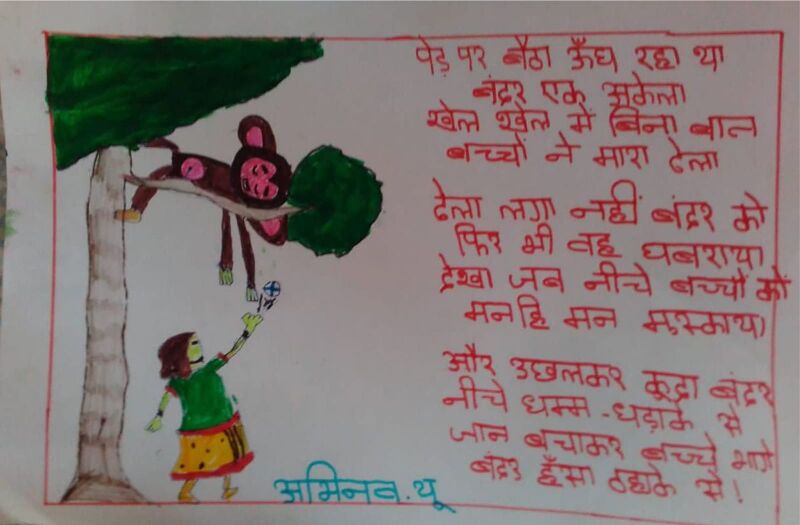 पेड़ पर बैठा ऊँघ रहा था
बंदर एक अकेला
खेल खेल में बिना बात
बच्चों ने मारा ढेला
ढेला लगा नहीं बंदर को
फिर भी वह घबराया
देखा जब नीचे बच्चों को
मनहि मन मुस्काया
और उछलकर कूदा बंदर
नीचे धम्म-धड़ाके से
जान बचाकर बच्चे भागे
बंदर हँसा ठहाके से!
अभिनव.यू